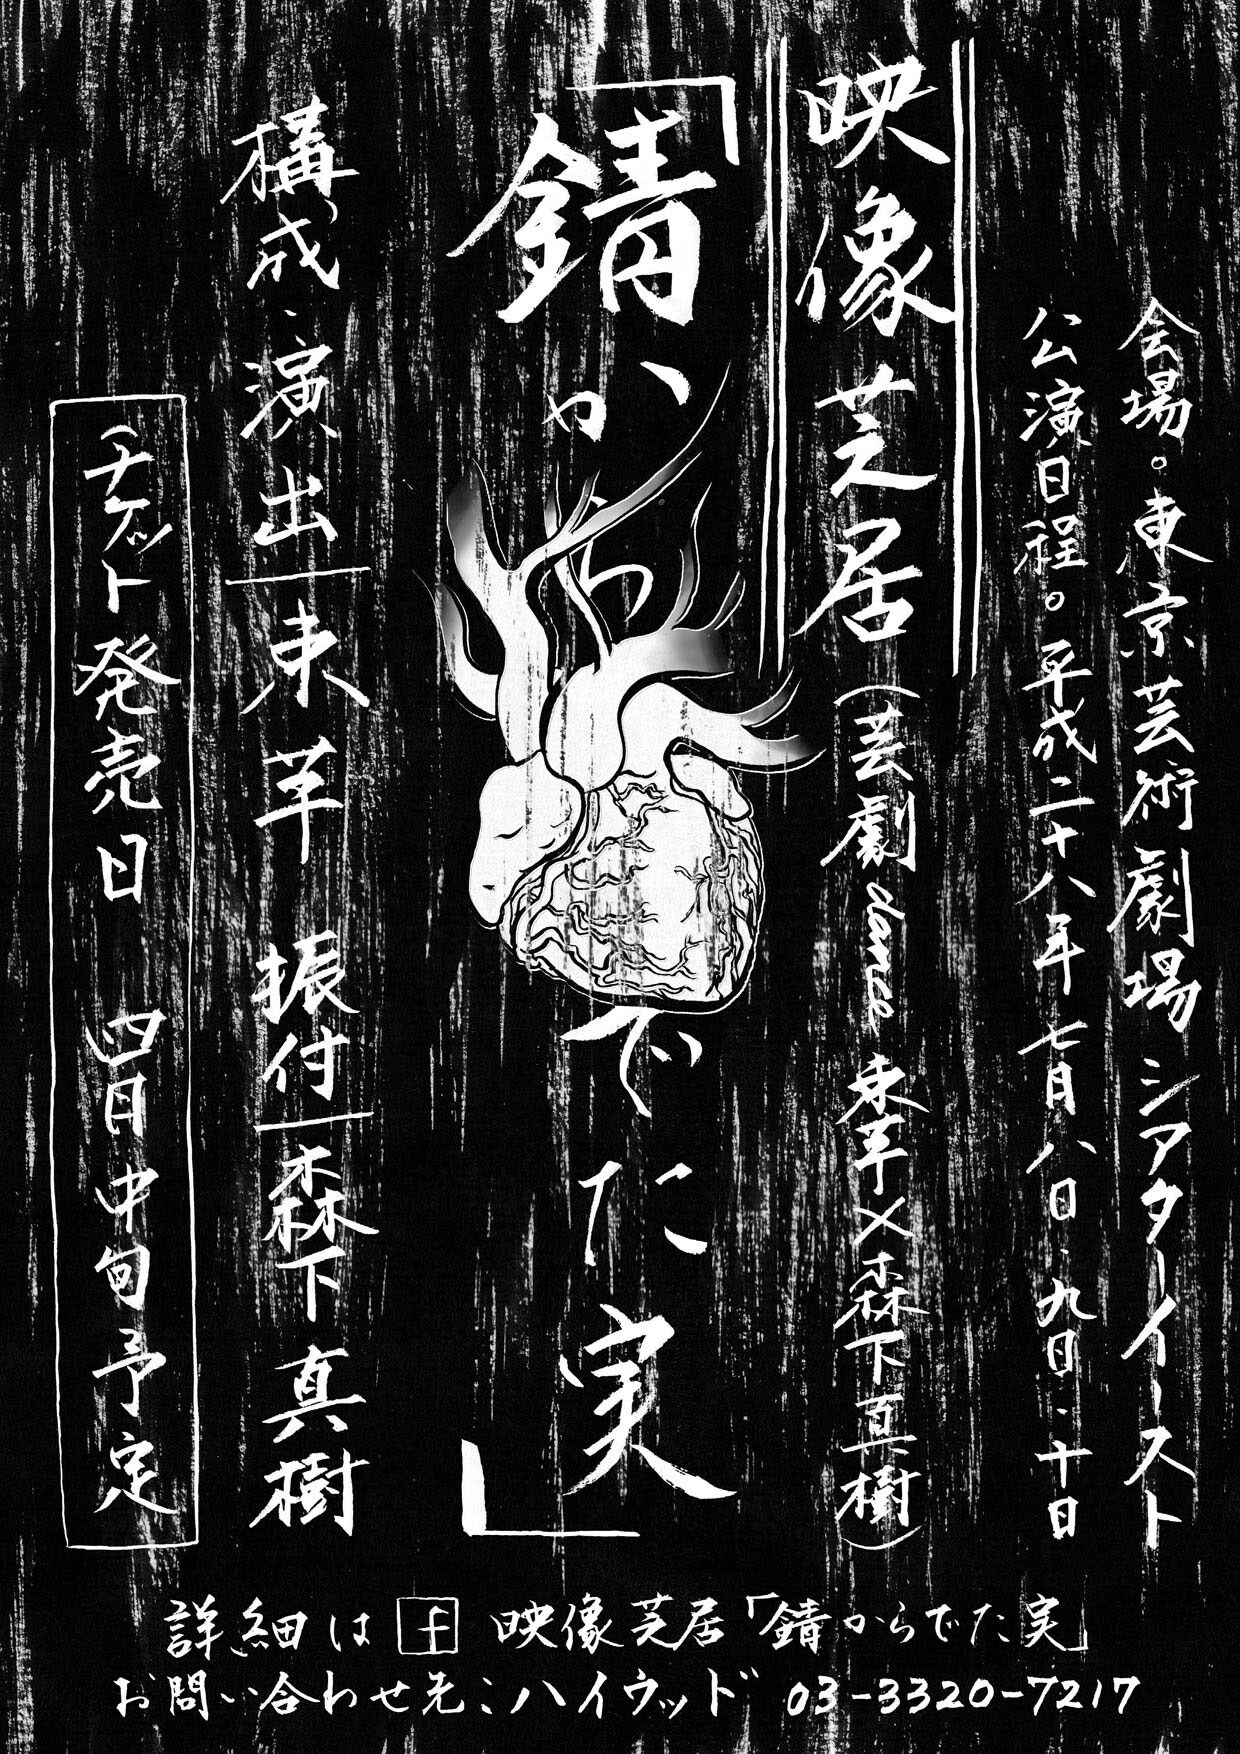 会場。東京芸術劇場 シアターイースト
公演日程。平成二十八年七月八日・九日・十日
映像芝居(芸劇dance 束芋×森下真樹)
「錆からでた実」
構成・演出―束芋 振付―森下真樹
チケット発売日 四月中旬予定
詳細は 映像芝居「錆からでた実」
お問い合わせ先:ハイウッド 03-3320-7217